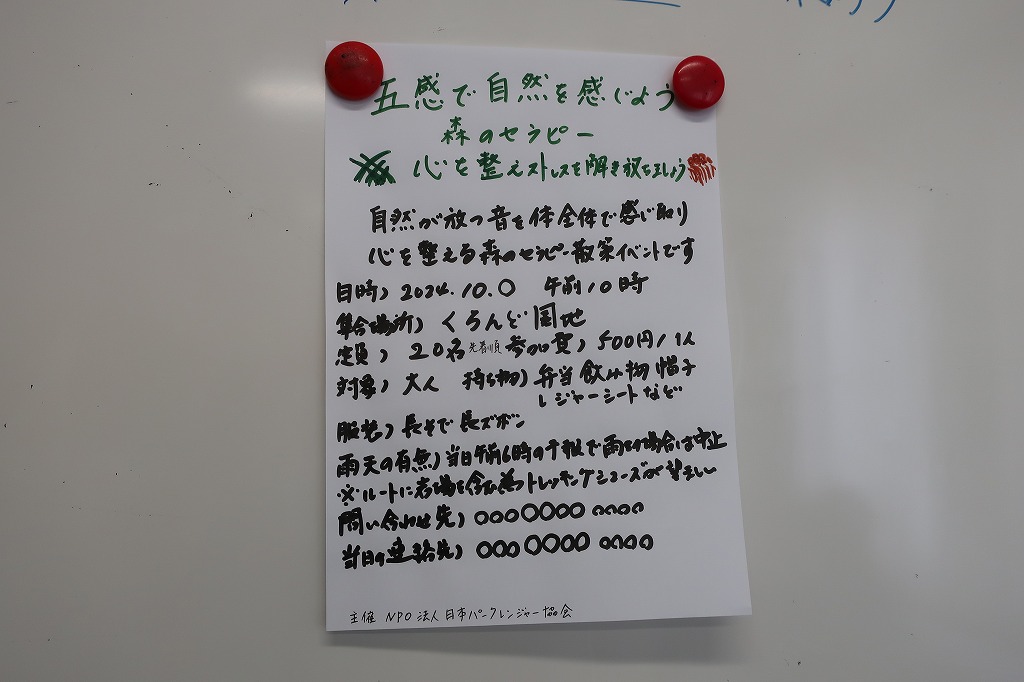 五感で自然を感じよう
森のセラピー
心を整えストレスを解き放ちましょう
自然が放つ音を体全体で感じ取り
心を整える森のセラピー散策イベントです
日時) 2024.10.0 午前10時
集合場所) くろんど園地
定員) 20名 先着順 参加費) 500円/1人
対象) 大人 持ち物) 弁当 飲み物 帽子
レジャーシートなど
服装) 長そで 長ズボン
雨天の有無) 当日午前6時の予報で雨の場合は中止
※ルートに岩場を含む為トレッキングシューズが望ましい
問い合わせ先) ○○○○○○○ ○○○○
当日の連絡先) ○○○ ○○○○ ○○○○
主催 NPO法人日本パークレンジャー協会